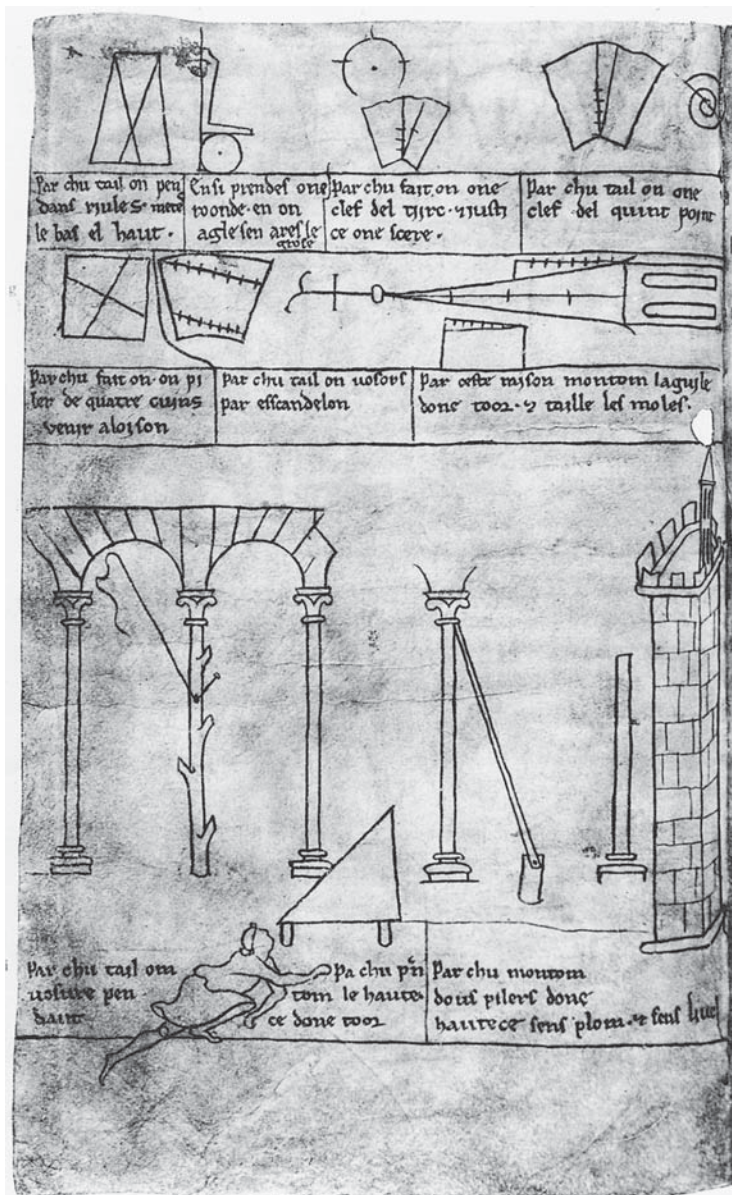 Par chu tail on pen
dans riules. mete
le bas el haut.
Ensi prendes one
roonde. en on
agle sen ares le
grose
Par chu fait. on one
clef del tiirc. ⁊ iusti
ce one scere.
Par chu tail on one
clef del quint point
Par chu fait on. on pi
ler de quatre cuins
venir aloison
Par chu tail on uosors
par esscandelon
Par ceste raison montom laguile
done toor. ⁊ taille les moles.
Par chu tail om
uosure pen
dant
Pa chu p̃n
tom le haute
ce done toor
Par chu montom
dous pilers done
hautece sens plom. ⁊ sens liuel